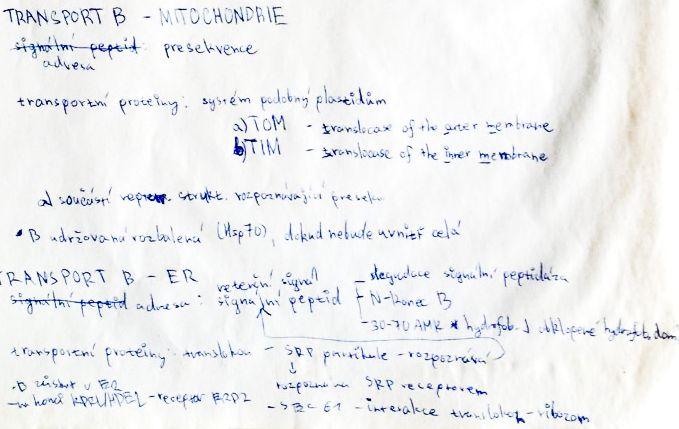 TRANSPORT B - MITOCHONDRIE
signální peptid: presekvence
adresa
transportní proteiny: systém podobný plastidům
a) TOM - translocase of the outer membrane
b) TIM - translocase of the inner membrane
součástí strukt. rozpoznávající presekv
B udržována rozbalená (Hsp70), dokud nebude uvnitř celá
TRANSPORT B - ER
signální peptid adresa: signální peptid
- degradace signální peptidáza
- N-konec B
- 30-70 AMK hydrofob. obklopené
transportní proteiny: translokon - SRP partikule - rozpoznává
rozpoznána SRP receptorem
na konci KDEL/HDEL - receptor ERD2
- SEC 61 - interakce translokon - ribozom